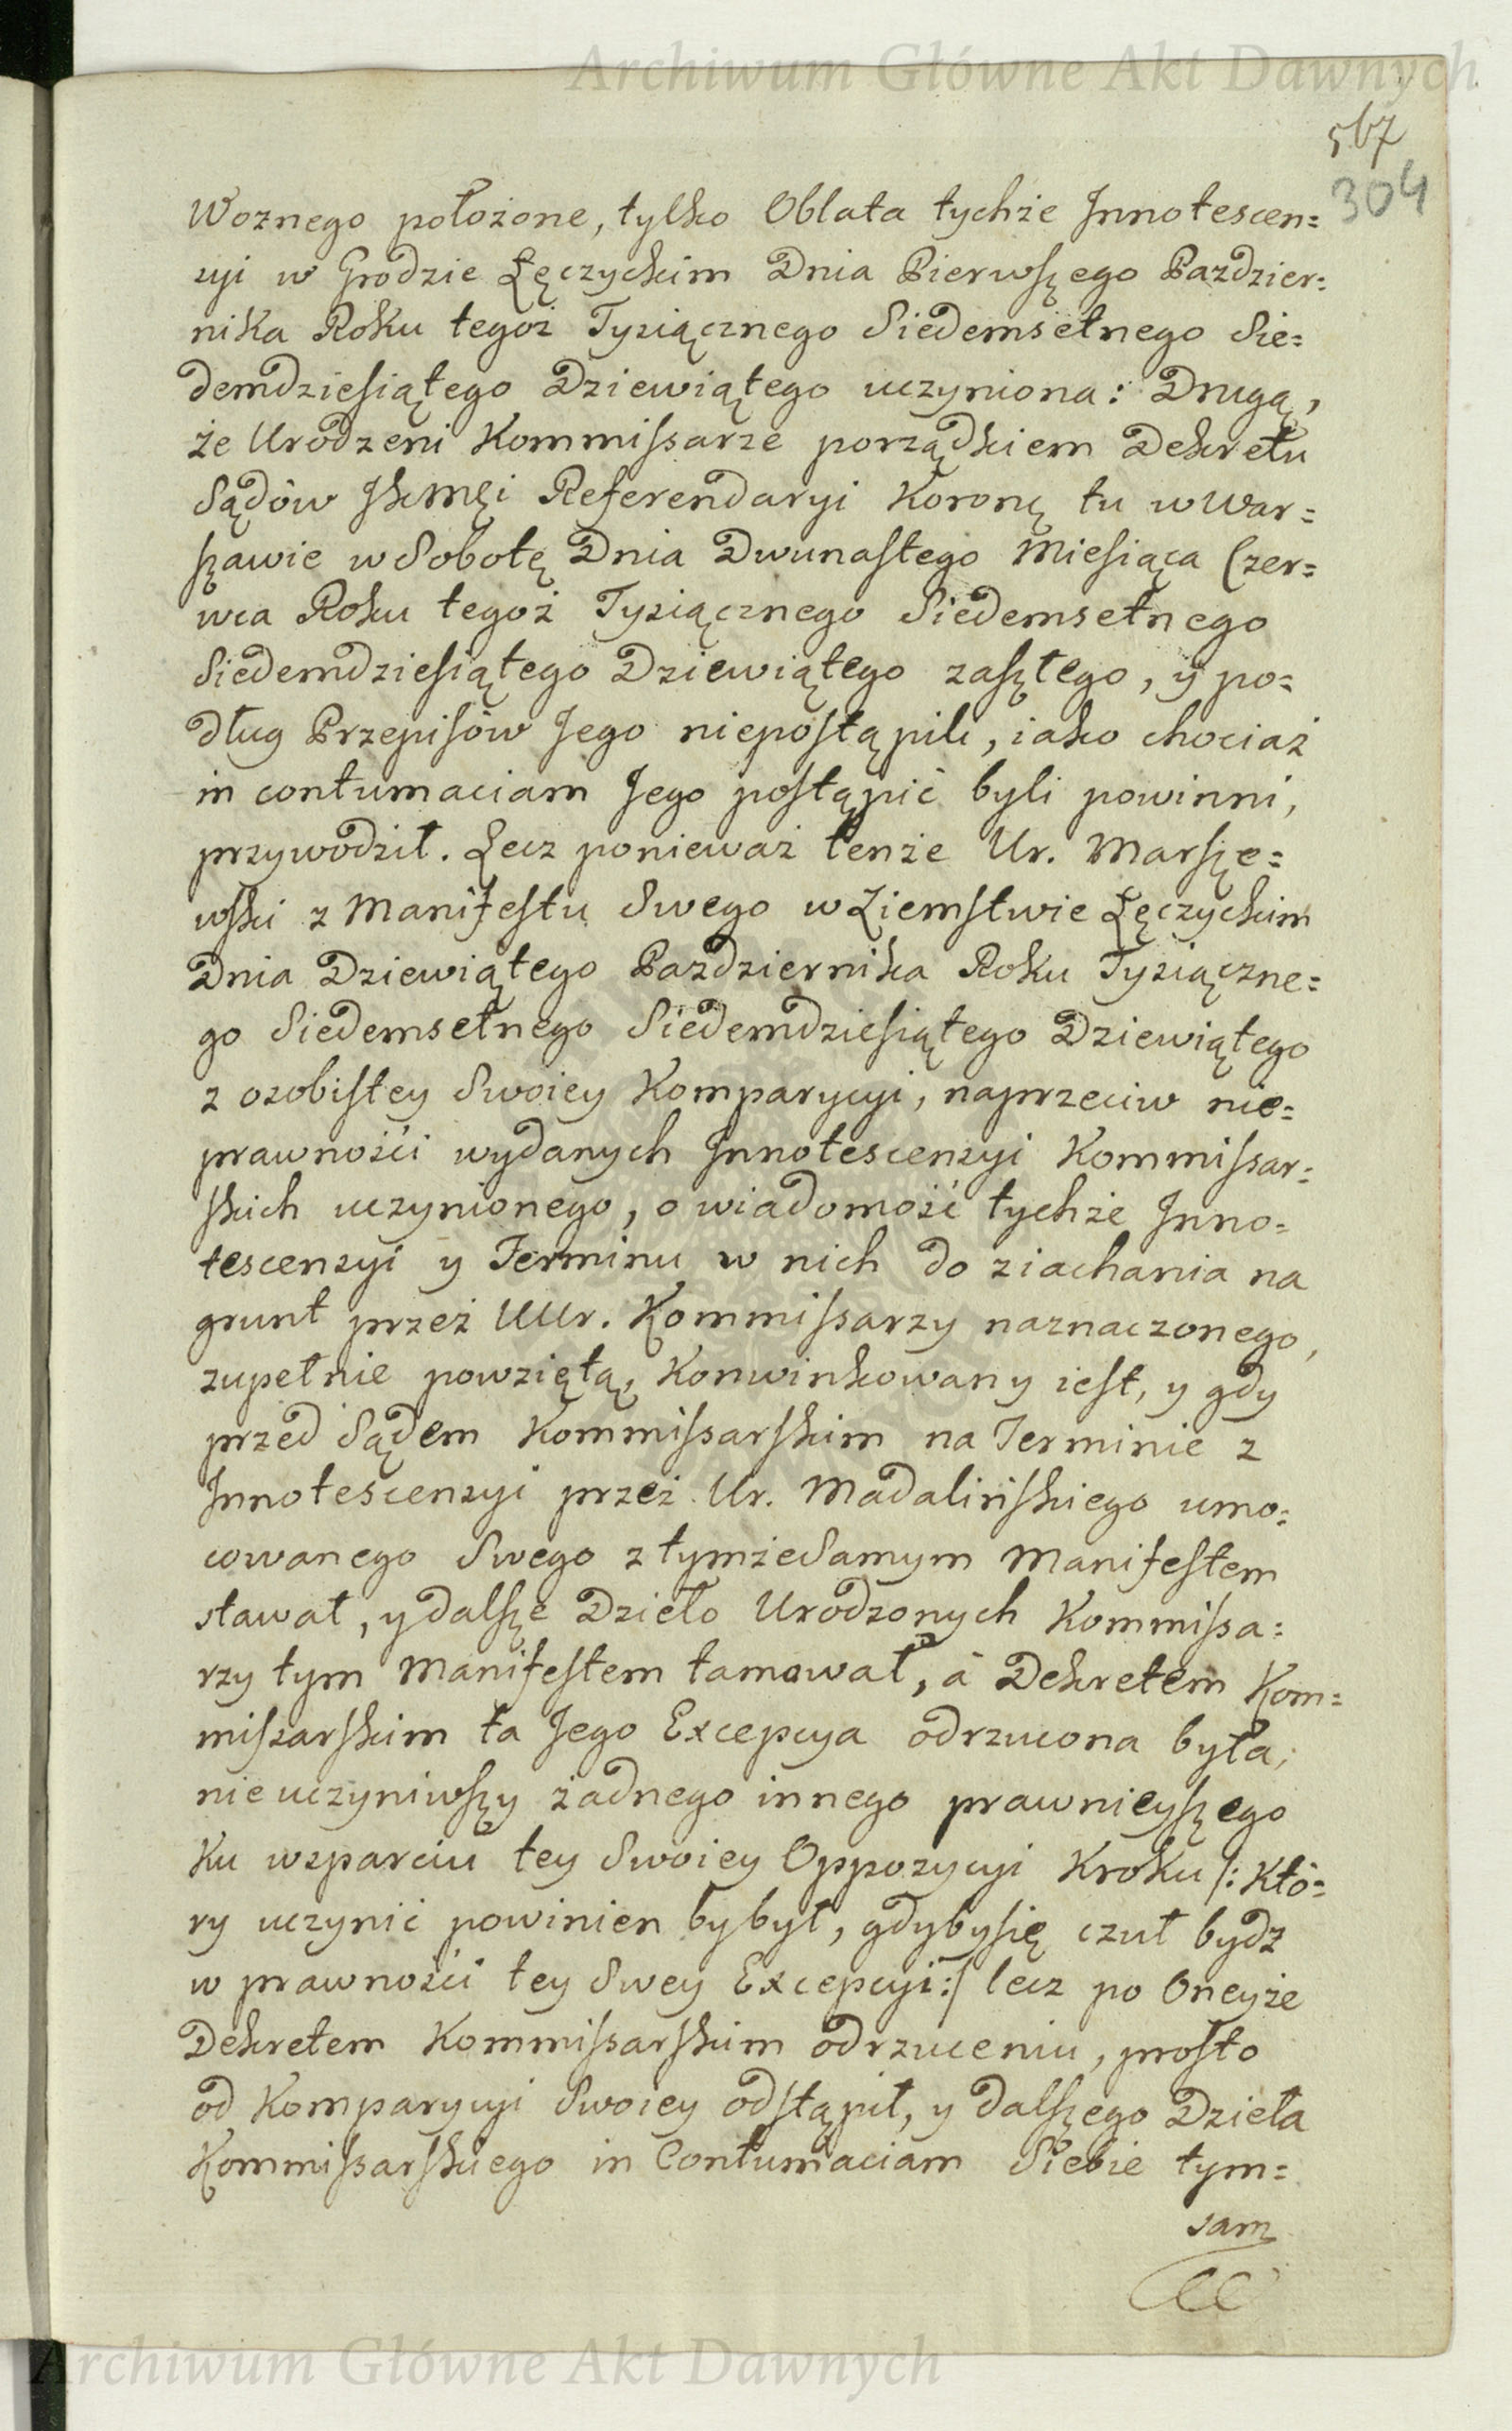 Archiwum Główne Akt Dawnych
567
304
Woznego położone, tylko Oblata tychże Innotescen=
zyi w Grodzie Łęczyckim Dnia Pierwszego Pazdzier=
nika Roku tegoż Tysiącznego Siedemsetnego Sie=
demdziesiątego Dziewiątego uczyniona: Drugą,
że Urodzeni Kommissarze porządkiem Dekretu
Sądów Jkmęi Referendaryi Koronę tu w War=
szawie w Sobotę Dnia Dwunastego Miesiąca Czer=
wca Roku tegoż Tysiącznego Siedemsetnego
Siedemdziesiątego Dziewiątego zaszłego, y po=
dług Przepisów Jego niepostąpili, iako chociaż
in contumaciam Jego postąpić byli powinni,
przywodził. Lecz ponieważ tenże Ur. Marsze=
wski z Manifestu Swego w Ziemstwie Łęczyckim
Dnia Dziewiątego Pazdziernika Roku Tysiączne=
go Siedemsetnego Siedemdziesiątego Dziewiątego
z ozobistey Swoiey Komparycyi, naprzeciw nie=
prawności wydanych Innotescenzyi Kommissar=
skich uczynionego, o wiadomość tychże Inno=
tescenzyi y Terminu w nich do ziachania na
grunt przez UUr. Kommissarzy naznaczonego,
zupełnie powziętą, Konwinkowany iest, y gdy
przed Sądem Kommissarskim na Terminie z
Innotescenzyi przez Ur. Madalińskiego umo=
cowanego Swego z tymże Samym Manifestem
stawał, y dalsze Dzieło Urodzonych Kommissa=
rzy tym Manifestem tamował, á Dekretem Kom=
missarskim ta Jego Excepcya odrzucona była,
nie uczyniwszy żadnego innego prawnieyszego
Ku wsparciu tey Swoiey Oppozycyi Kroku /: Któ=
ry uczynić powinien by był, gdyby się czuł bydz
w prawności tey Swey Excepcyi :/ lecz po Oneyże
Dekretem Kommissarskim odrzuceniu, prosto
od Komparycyi Swoiey odstąpił, y dalszego Dzieła
Kommissarskiego in Contumaciam Siebie tym=
sam
Archiwum Główne Akt Dawnych